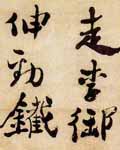 走李御
伸勁鐵